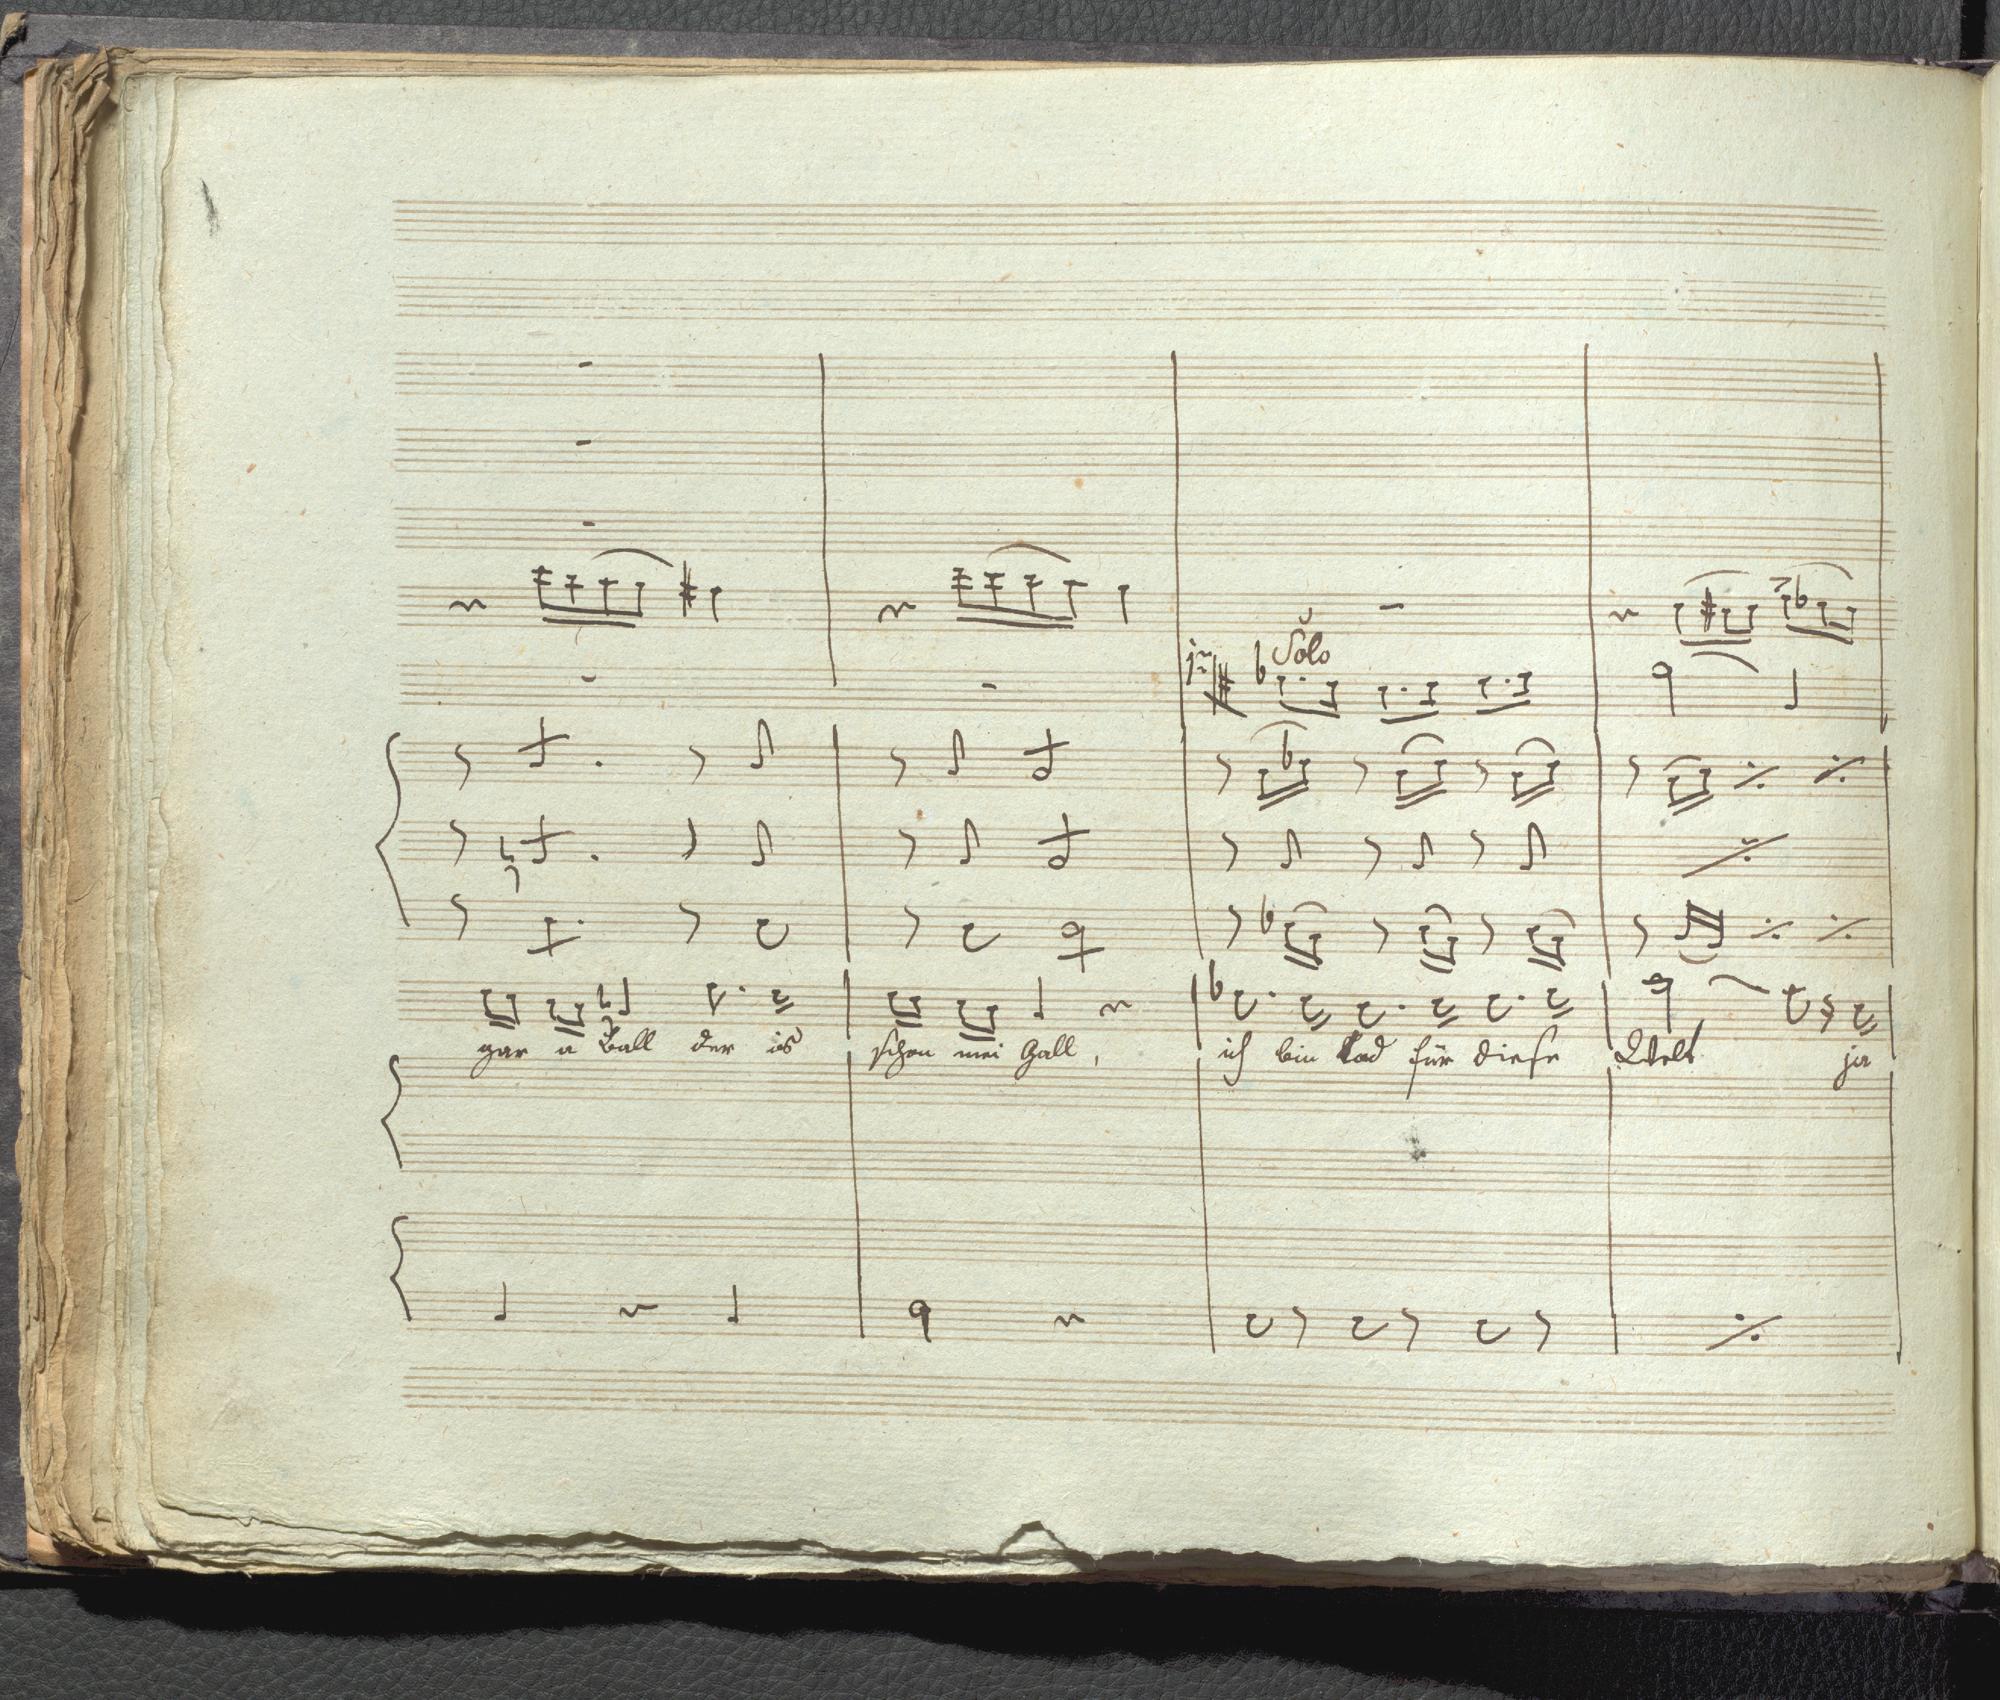 Solo
gar a Ball der is schon mei Gall, ich bin Tod für diese Welt ja